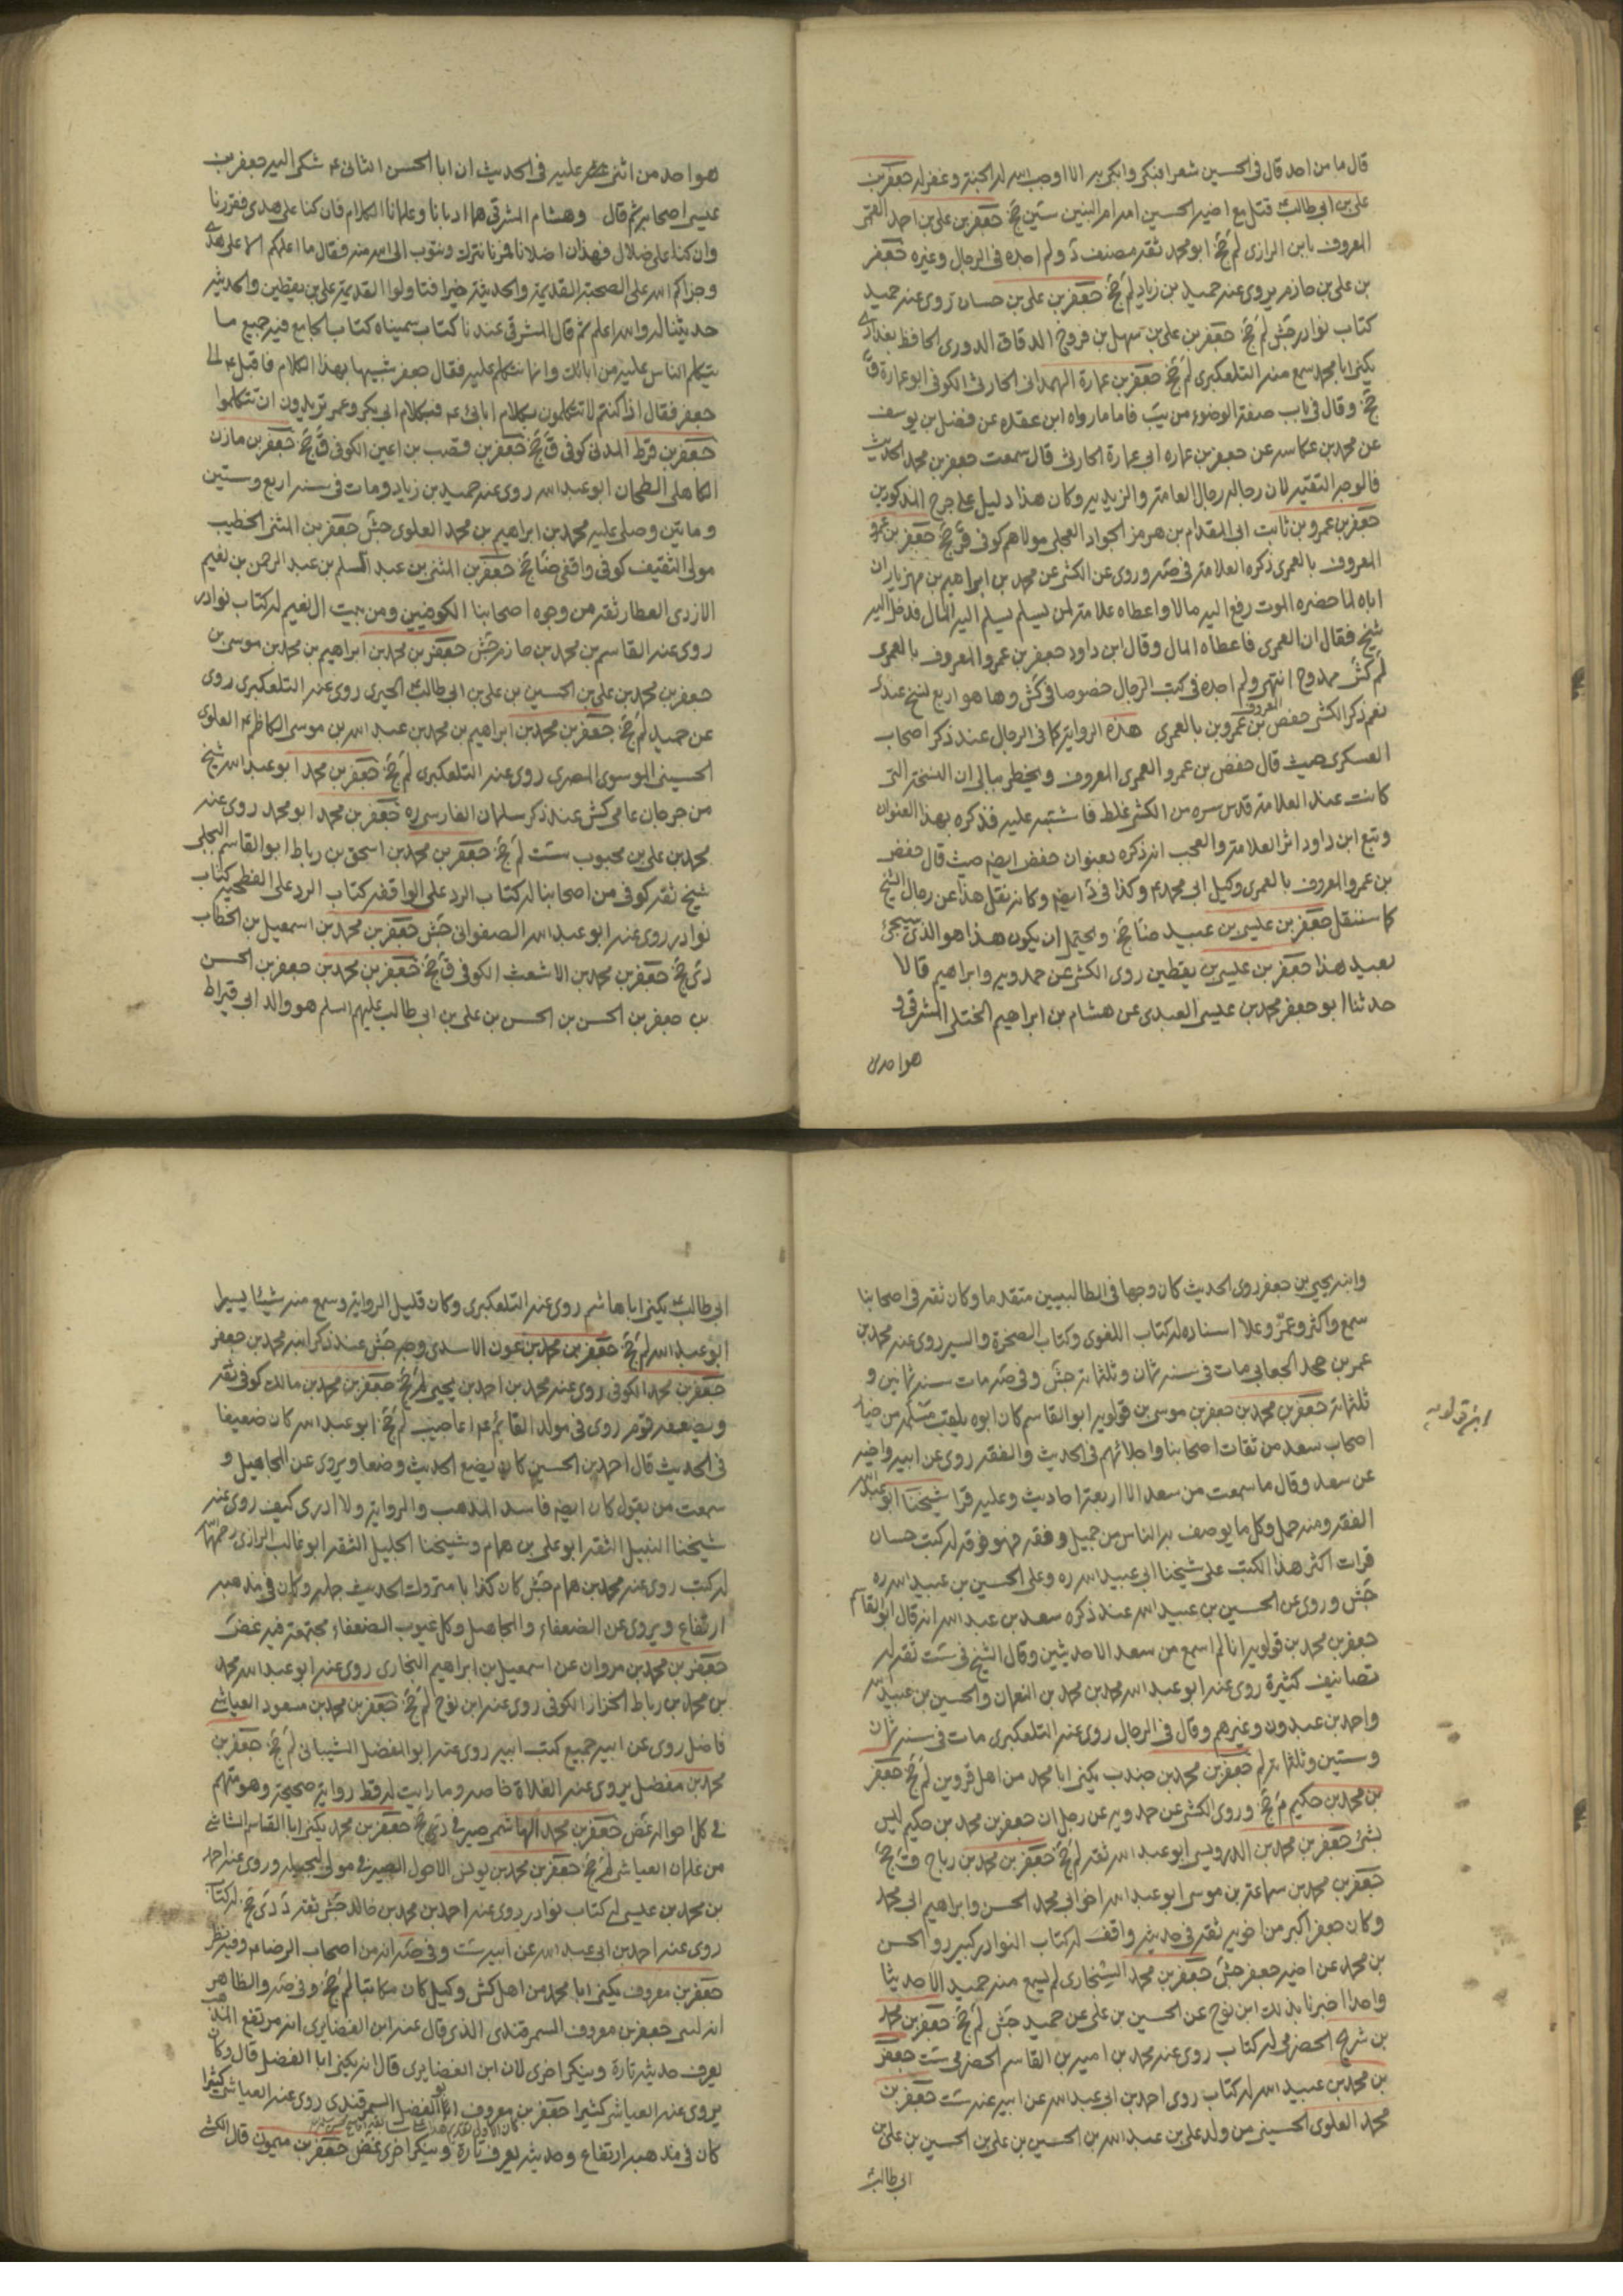 قال ما من احد قال في الحسين شعرا فبكى وابكى به الا اوجب الله له الجنة وغفر له جعفر بن
علي بن ابي طالب ع قتل مع اخيه الحسين امه ام البنين سين جخ جعفر بن علي بن احمد القمي
المعروف بابن الرازي لم جخ ابو محمد ثقة مصنف د ولم اجده في الرجال وغيره جعفر
بن علي بن حازم يروي عنه حميد بن زياد لم جخ جعفر بن علي بن حسان روى عنه حميد
كتاب نوادر جش لم جخ جعفر بن علي بن سهل بن فروخ الدقاق الدوري الحافظ بغدادي
يكنى ابا محمد سمع منه التلعكبري لم جخ جعفر بن عمارة الهمداني الخارفي الكوفي ابو عمارة ق
جخ وقال في باب صفة الوضوء من يب فاما ما رواه ابن عقده عن فضل بن يوسف
عن محمد بن عكاسه عن جعفر بن عماره ابي عمارة الحارثي قال سمعت جعفر بن محمد الحديث
فالوجه التقيه لان رجاله رجال العامة والزيديه وكان هذا دليل على جرح المذكورين
جعفر بن عمرو بن ثابت ابي المقدام بن هرمز الجواد العجلي مولاهم كوفي ق جخ جعفر بن عمرو
المعروف بالعمري ذكره العلامة في صه وروى عن الكشي عن محمد بن ابراهيم بن مهزيار ان
اباه لما حضره الموت رفع اليه مالا واعطاه علامة لمن يسلم يسلم اليه المال فدخل اليه
شيخ فقال ان العمري فاعطاه المال وقال ابن داود جعفر بن عمرو المعروف بالعمري
لم كش ممدوح انتهى ولم اجده في كتب الرجال خصوصا في كش وها هو اربع نسخ عندي
نعم ذكر الكشي حفص بن عمرو بن المعروف بالعمري هذه الرواية كما في الرجال عند ذكر اصحاب
العسكري حيث قال حفص بن عمرو العمري المعروف ويخطر ببالي ان النسخة التي
كانت عند العلامة قدس سره من الكشي غلط فاشتبه عليه فذكره بهذا العنوان
وتبع ابن داود اثر العلامة والعجب انه ذكره بعنوان حفص ايضا حيث قال حفص
بن عمرو المعروف بالعمري وكيل ابي محمد ع وكذا في د ايضا وكانه نقل هذا عن رجال الشيخ
كما سننقل جعفر بن عيسى بن عبيد ضا جخ ويحتمل ان يكون هذا هو الذي سيجئ
بعيد هذا جعفر بن عيسى بن يقطين روى الكشي عن حمدويه وابراهيم قالا
حدثنا ابو جعفر محمد بن عيسى العبيدي عن هشام بن ابراهيم الختلي المشرقي و
هو احد من
هو احد من اثنى عشر عليه في الحديث ان ابا الحسن الثاني ع شكى اليه جعفر بن
عيسى اصحابه ثم قال وهشام المشرقي هما ادبانا وعلمانا الكلام فان كنا على هدى فقررنا
وان كنا على ضلال فهذان اضلانا فمرنا نتركه ونتوب الى الله منه فقال ما اعلمكم الا على هدى
وجزاكم الله على الصحبة القديمة والحديثة خيرا فتاولوا القديمة علي بن يقطين والحديثة
حديثنا له والله اعلم ثم قال المشرقي عندنا كتاب سميناه كتاب الجامع فيه جميع ما
يتكلم الناس عليه من آبائك وانما نتكلم عليه فقال جعفر شبيها بهذا الكلام فاقبل ع على
جعفر فقال اذا كنتم لا تتكلمون بكلام ابائي ع فبكلام ابي بكر وعمر تريدون ان تتكلموا
جعفر بن قرط المدني كوفي ق جخ جعفر بن قعنب بن اعين الكوفي ق جخ جعفر بن مازن
الكاهلي الطحان ابو عبد الله روى عنه حميد بن زياد ومات في سنه اربع وستين
ومايتين وصلى عليه محمد بن ابراهيم بن محمد العلوي جش جعفر بن المثنى الخطيب
مولى الثقيف كوفي واقفي ضا جخ جعفر بن المثنى بن عبد السلم بن عبد الرحمن بن نعيم
الازدي العطار ثقه من وجوه اصحابنا الكوفيين ومن بيت ال نعيم له كتاب نوادر
روى عنه القاسم بن محمد بن حازم جش جعفر بن محمد بن ابراهيم بن محمد بن موسى بن
جعفر بن محمد بن علي بن الحسين بن علي بن ابي طالب ع الحيري روى عنه التلعكبري روى
عن حميد لم جخ جعفر بن محمد بن ابراهيم بن محمد بن عبد الله بن موسى الكاظم ع العلوي
الحسيني الموسوي المصري روى عنه التلعكبري لم جخ جعفر بن محمد ابو عبد الله شيخ
من جرجان عامي كش عند ذكر سلمان الفارسي ره جعفر بن محمد ابو محمد روى عنه
محمد بن علي بن محبوب ست لم جخ جعفر بن محمد بن اسحق بن رباط ابو القاسم البجلي
شيخ ثقه كوفي من اصحابنا له كتاب الرد على الواقفه كتاب الرد على الفطحيه كتاب
نوادر روى عنه ابو عبد الله الصفواني جش جعفر بن محمد بن اسمعيل بن الخطاب
دي جخ جعفر بن محمد بن الاشعث الكوفي ق جخ جعفر بن محمد بن جعفر بن الحسن
بن جعفر بن الحسن بن الحسن بن علي بن ابي طالب عليهم السلم هو والد ابي قيراط
وابنه يحيى بن جعفر روى الحديث كان وجها في الطالبيين متقدما وكان ثقه في اصحابنا
سمع واكثر وعمّر وعلا اسناده له كتاب اللغوي وكتاب الصخرة والبير روى عنه محمد بن
عمر بن محمد الجعابي مات في سنه ثمان وثلثمائة جش وفي صه مات سنه ثمانين و
ثلثمائة جعفر بن محمد بن جعفر بن موسى بن قولويه ابو القاسم كان ابوه يلقب مسلمه من خيار
اصحاب سعد من ثقات اصحابنا واجلائهم في الحديث والفقه روى عن ابيه واخيه
عن سعد وقال ما سمعت من سعد الا اربعة احاديث وعليه قرا شيخنا ابو عبد الله
الفقه ومنه حمل وكل ما يوصف به الناس من جميل وفقه فهو فوقه له كتب حسان
قرات اكثر هذا الكتب على شيخنا ابي عبيد الله ره وعلى الحسين بن عبيد الله ره
جش وروى عن الحسين بن عبيد الله عند ذكره سعد بن عبد الله انه قال ابو القاسم
جعفر بن محمد بن قولويه انا لم اسمع من سعد الا حديثين وقال الشيخ في ست ثقه له
تصانيف كثيرة روى عنه ابو عبد الله محمد بن محمد بن النعمان والحسين بن عبيد الله
واحمد بن عبدون وغيرهم وقال في الرجال روى عنه التلعكبري مات في سنه ثمان
وستين وثلثمائة لم جعفر بن محمد بن جندب يكنى ابا محمد من اهل قزوين لم جخ جعفر
بن محمد بن حكيم م جخ وروى الكشي عن حمدويه عن رجل ان جعفر بن محمد بن حكيم ليس
بشئ جعفر بن محمد بن الدرويسي ابو عبد الله ثقه لم جخ جعفر بن محمد بن رباح ق جخ
جعفر بن محمد بن سماعة بن موسى ابو عبد الله اخو ابي محمد الحسن وابراهيم ابي محمد
وكان جعفر اكبر من اخويه ثقه في حديثه واقف له كتاب النوادر كبير روى الحسن
بن محمد عن اخيه جعفر جش جعفر بن محمد السنجاري لم يسمع منه حميد الا حديثا
واحدا اخبرنا بذلك ابن نوح عن الحسين بن علي عن حميد جش لم جخ جعفر بن محمد
بن شريح الحضرمي له كتاب روى عنه محمد بن امية بن القاسم الحضرمي ست جعفر
بن محمد بن عبيد الله له كتاب روى احمد بن ابي عبد الله عن ابيه عنه ست جعفر بن
محمد العلوي الحسيني من ولد علي بن عبد الله بن الحسين بن علي بن الحسين بن علي بن
ابي طالب
ابن قولويه
ابي طالب ع يكنى ابا هاشم روى عنه التلعكبري وكان قليل الرواية وسمع منه شيئا يسيرا
ابو عبد الله لم جخ جعفر بن محمد بن عون الاسدي وجه جش عند ذكر ابنه محمد بن جعفر
جعفر بن محمد الكوفي روى عنه محمد بن احمد بن يحيى لم جخ جعفر بن محمد بن مالك كوفي ثقه
ويضعفه قوم روى في مولد القائم ع اعاجيب لم جخ ابو عبد الله كان ضعيفا
في الحديث قال احمد بن الحسين كان يضع الحديث وضعا ويروي عن المجاهيل و
سمعت من يقول كان ايضا فاسد المذهب والرواية ولا ادري كيف روى عنه
شيخنا النبيل الثقه ابو علي بن همام وشيخنا الجليل الثقه ابو غالب الرازي رحمهما الله
له كتب روى عنه محمد بن همام جش كان كذابا متروك الحديث جمله وكان في مذهبه
ارتفاع ويروي عن الضعفاء والمجاهيل وكل عيوب الضعفاء مجتمعة فيه غض
جعفر بن محمد بن مروان عن اسمعيل بن ابراهيم البخاري روى عنه ابو عبد الله محمد
بن محمد بن رباط الخزاز الكوفي روى عنه ابن نوح لم جخ جعفر بن محمد بن مسعود العياشي
فاضل روى عن ابيه جميع كتب ابيه روى عنه ابو المفضل الشيباني لم جخ جعفر بن
محمد بن مفضل يروي عنه الغلاة خاصه وما رايت له قط رواية صحيحة وهو متهم
في كل احواله غض جعفر بن محمد الهاشمي صيرفي دي جخ جعفر بن محمد يكنى ابا القاسم الشاشي
من غلمان العياشي لم جخ جعفر بن محمد بن يونس الاحول الصيرفي مولى لبجيله وروى عنه احمد
بن محمد بن عيسى له كتاب نوادر روى عنه احمد بن محمد بن خالد جش ثقه د دي جخ له كتاب
روى عنه احمد بن ابي عبد الله عن ابيه ست وفي صه انه من اصحاب الرضا ع وفيه نظر
جعفر بن معروف يكنى ابا محمد من اهل كش وكيل كان مكاتبا لم جخ وفي صه والظاهر
انه ليس جعفر بن معروف السمرقندي الذي قال عنه ابن الغضايري انه مرتفع المذهب
يعرف حديثه تارة وينكر اخرى لان ابن الغضايري قال انه يكنى ابا الفضل قال وكان
يروي عنه العياشي كثيرا جعفر بن معروف ابو الفضل السمرقندي روى عنه العياشي كثيرا
كان في مذهبه ارتفاع وحديثه يعرف تارة وينكر اخرى غض جعفر بن ميمون قال الكشي